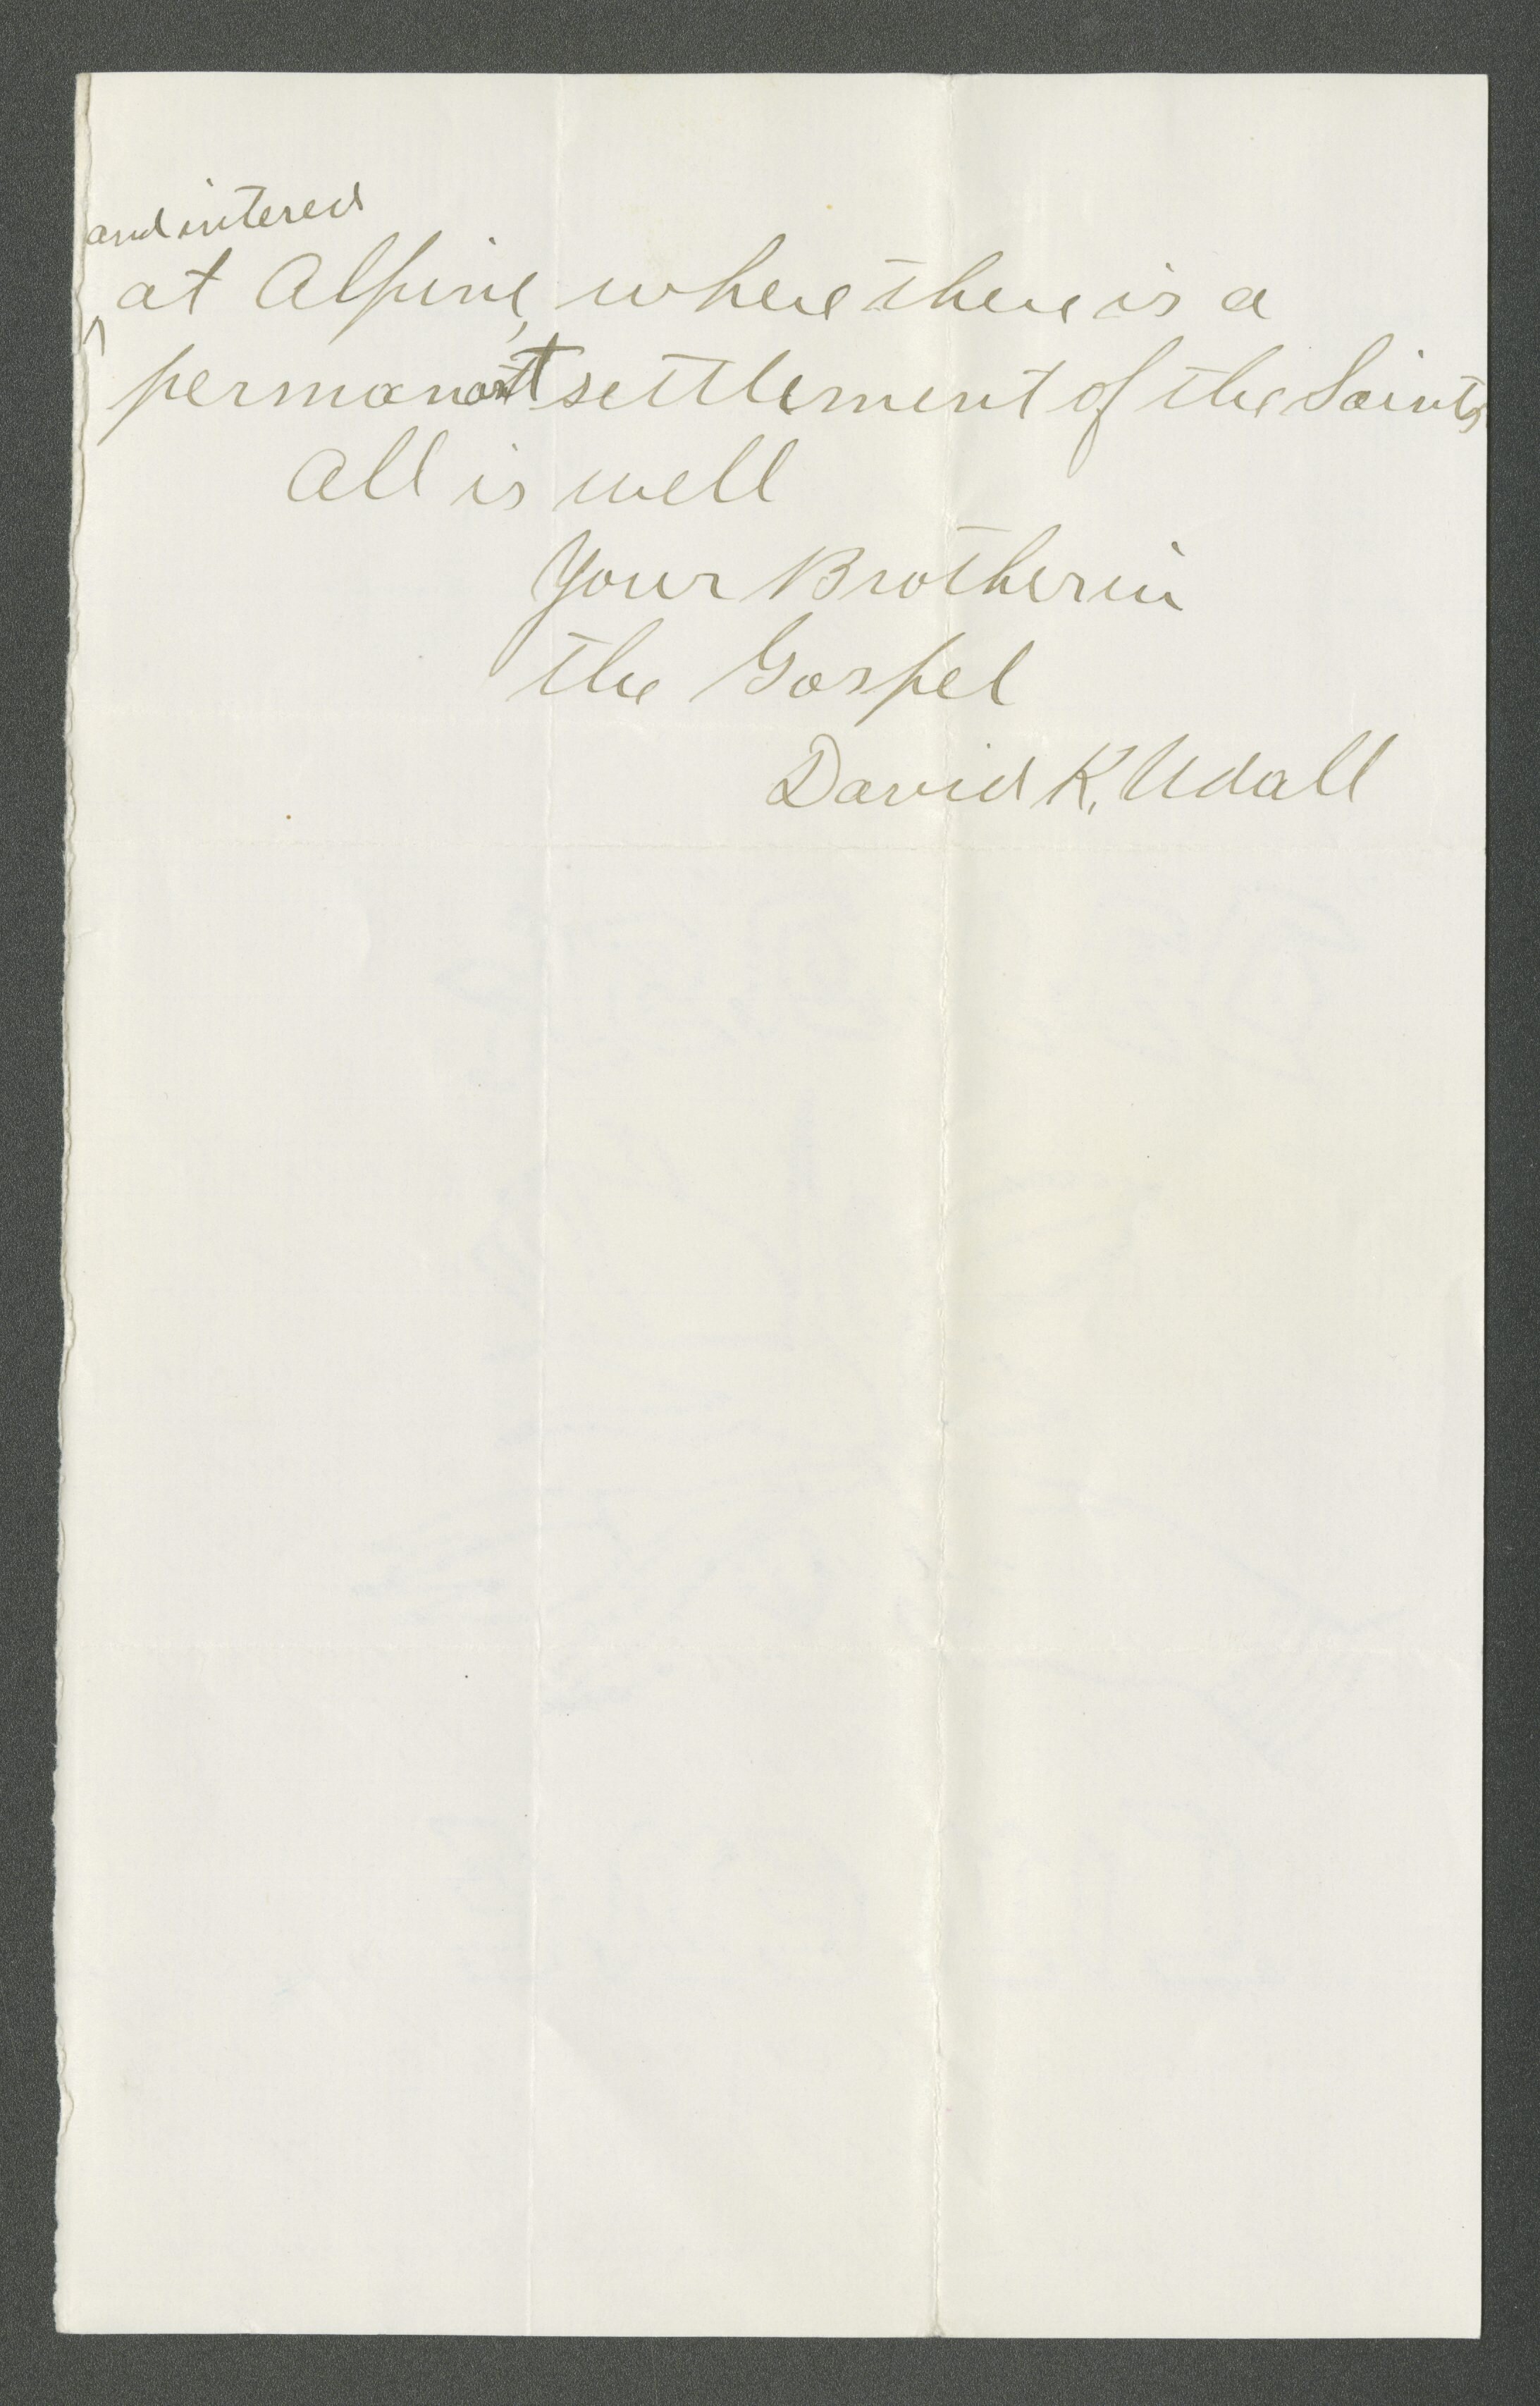 and intered
at Alpine, where there is a
permanant settlement of the Saints
All is well
Your Brother in
the Gospel
David K. Udall